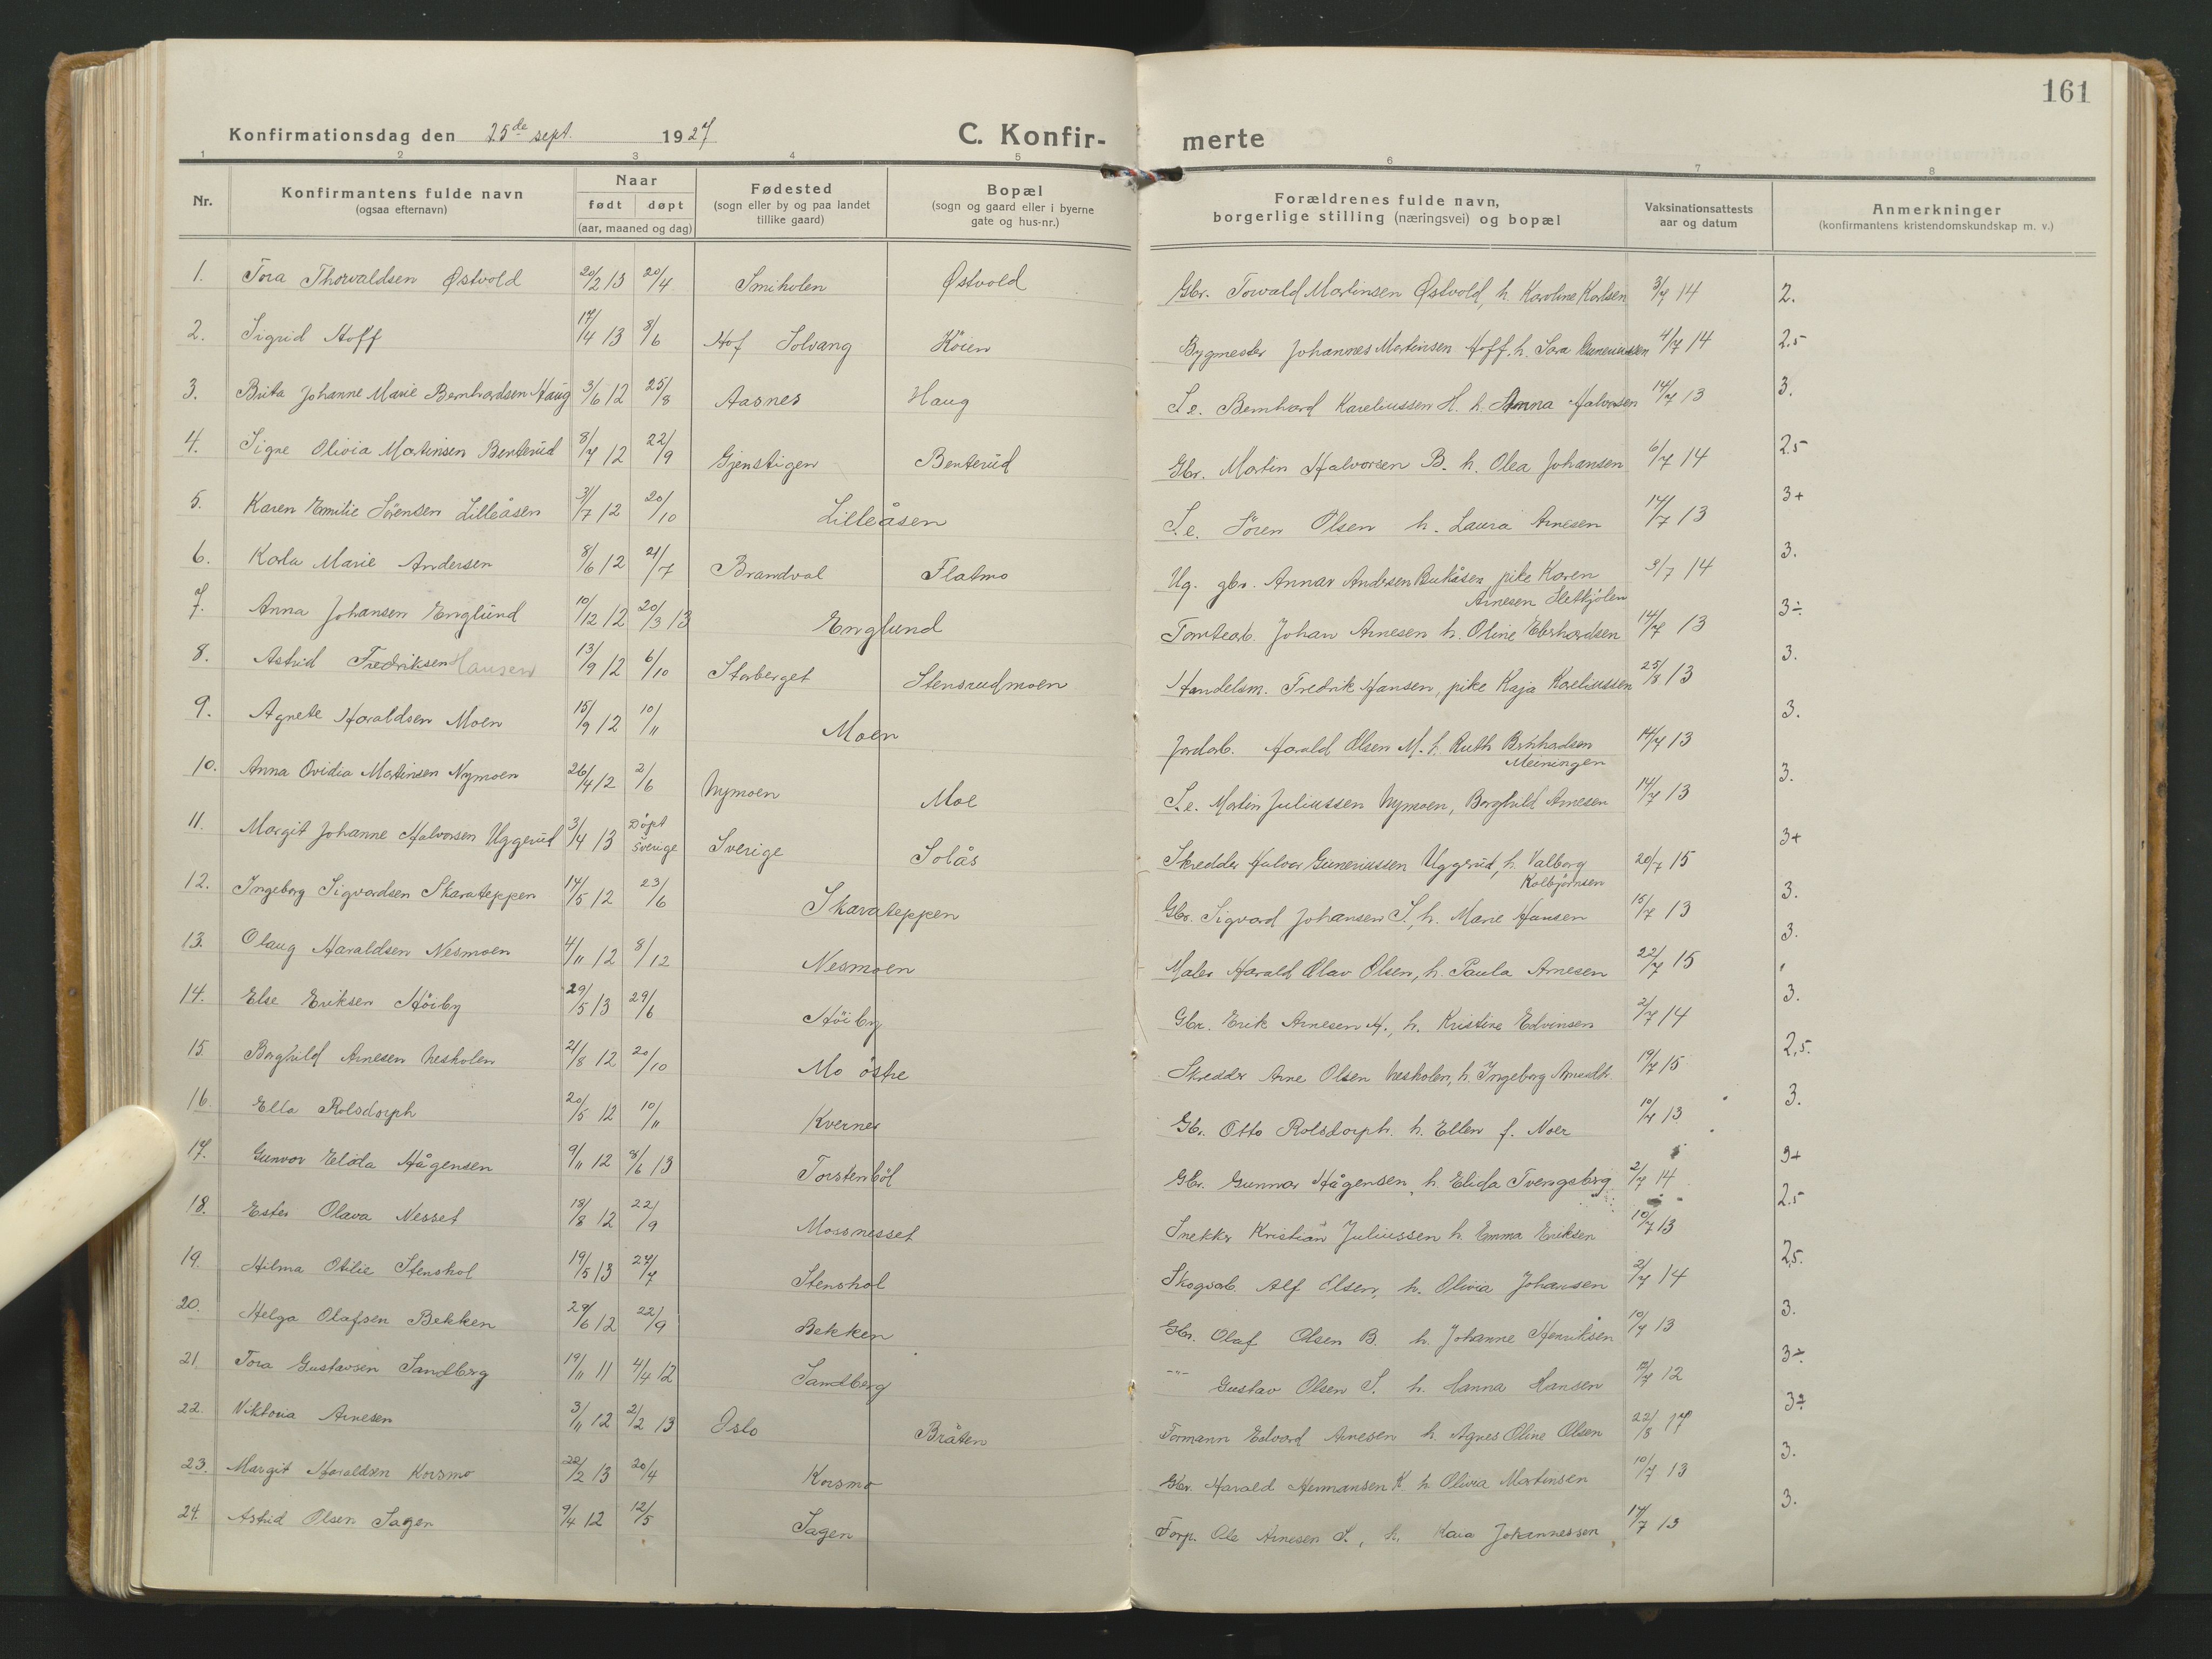 161
Konfirmationsdag den 25de sept. 1927 C. Konfir- merte
1 2 3 4 5 6 7 8
Nr. Konfirmantens fulde navn (ogsaa efternavn) Naar født døpt (aar, maaned og dag) Fødested (sogn eller by og paa landet tillike gaard) Bopæl (sogn og gaard eller i byerne gate og hus-nr.) Forældrenes fulde navn, borgerlige stilling (næringsvei) og bopæl Vaksinationsattests aar og datum Anmerkninger (konfirmantens kristendomskundskap m. v.)
1. Tora Thorvaldsen Østvold 20/2 13 20/4 Smiholen Østvold Gbr. Torvald Martinsen Østvold, h. Karoline Karlsen 3/7 14 2.
2. Sigrid Hoff 17/4 13 8/6 Hof Solvang Köien Bygmester Johannes Martinsen Hoff, h. Sara Guneriussen 4/7 14 2.5
3. Brita Johanne Marie Bernhardsen Haug 3/6 12 25/8 Aasnes Haug S.e. Bernhard Kareliussen H. h. Anna Halvorsen 14/7 13 3.
4. Signe Olivia Martinsen Benterud 8/7 12 22/9 Gjenstigen Benterud Gbr. Martin Halvorsen B. h. Olea Johansen 6/7 14 2.5
5. Karen Emilie Sörensen Lilleåsen 31/7 12 20/10 Lilleåsen S.e. Sören Olsen h. Laura Arnesen 14/7 13 3+
6. Karla Marie Andersen 8/6 12 21/7 Brandval Flatmo Ug. gbr. Annar Andersen pike Karen 3/7 14 3.
Arnesen
7. Anna Johansen Englund 10/12 12 20/3 13 Englund Tomtearb. Johan Arnesen h. Oline Eberhardsen 14/7 13 3÷
8. Astrid Fredriksen Hansen 13/9 12 6/10 Storberget Stensrudmoen Handelsm. Fredrik Hansen, pike Kaja Kareliussen 25/8 13 3.
9. Agnete Haraldsen Moen 15/9 12 10/11 Moen Jordarb. Harald Olsen M. h. Ruth Bernhardsen 14/7 13 3.
Meiningen
10. Anna Ovidia Martinsen Nymoen 26/4 12 2/6 Nymoen Moe S.e. Martin Juliussen Nymoen, Borghild Arnesen 14/7 13 3.
11. Margit Johanne Halvorsen Uggerud 3/4 13 Döpt Sverige Sverige Solås Skredder Halvor Guneriussen Uggerud, h. Valborg 20/7 15 3+
Kolbjörnsen
12. Ingeborg Sigvardsen Skarateppen 14/5 12 23/6 Skarateppen Gbr. Sigvard Johansen S., h. Marie Hansen 15/7 13 3.
13. Olaug Haraldsen Nesmoen 4/11 12 8/12 Nesmoen Maler Harald Olav Olsen, h. Paula Arnesen 22/7 15 3.
14. Else Eriksen Höiby 29/5 13 29/6 Höiby Gbr. Erik Arnesen H., h. Kristine Edvinsen 2/7 14 3.
15. Borghild Arnesen Nesholen 21/8 12 20/10 Mo östre Skredder Arne Olsen Nesholen, h. Ingeborg Arnedtr. 19/7 15 2,5.
16. Ella Rolsdorph 20/5 12 10/11 Kvernes Gbr. Otto Rolsdorph. h. Ellen f. Noer 10/7 13 3.
17. Gunvor Elida Hågensen 9/11 12 8/6 13 Torstenböl Gbr. Gunnar Hågensen, h. Elida Tvengsberg 2/7 14 3+
18. Ester Olava Nesset 18/8 12 22/9 Mossnesset Snekker Kristian Juliussen h. Emma Eriksen 10/7 13 2.5
19. Hilma Otilie Stenshol 19/5 13 27/7 Stenshol Skogsarb. Alf Olsen, h. Olivia Johansen 2/7 14 2,5.
20. Helga Olafsen Bekken 29/6 12 22/9 Bekken Gbr. Olaf Olsen B. h. Johanne Henriksen 10/7 13 3.
21. Tora Gustavsen Sandberg 19/11 11 4/4 12 Sandberg -"- Gustav Olsen S. h. Hanna Hansen 12/7 12 3÷
22. Viktoria Arnesen 3/11 12 2/2 13 Oslo Bråten Formann Edvard Arnesen h. Agnes Oline Olsen 22/8 17 3÷
23. Margit Haraldsen Korsmo 22/2 13 20/4 Korsmo Gbr. Harald Hermansen K. h. Olivia Martinsen 10/7 13 3.
24. Astrid Olsen Sagen 9/4 12 12/5 Sagen Forp. Ole Arnesen S., h. Kaia Johannessen 14/7 13 3.